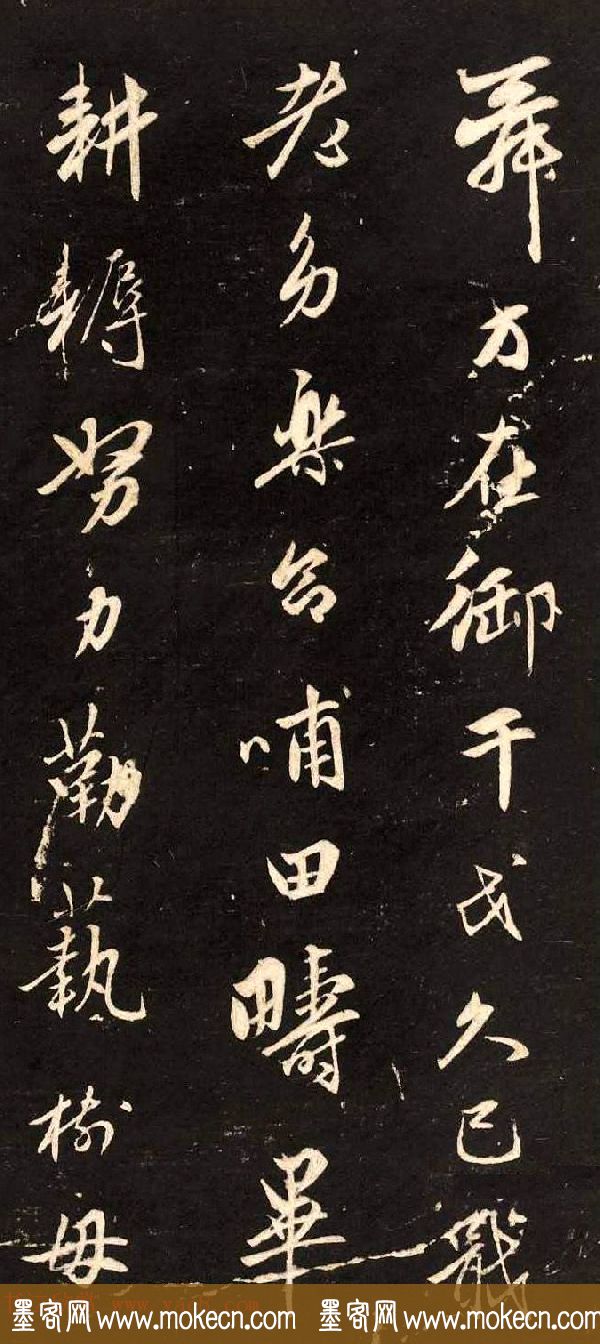 舞方在御干戈久已戢
老幼樂含哺田疇畢
耕耨努力勤藝樹毋
墨客网 www.mokecn.com 墨客网 www.mokecn.com